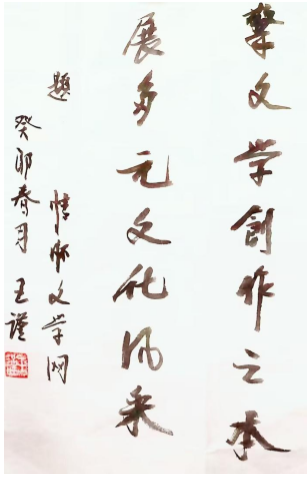 擎文学創作之本
展多元文化风采
题 情怀文学网
癸卯春月 王谨